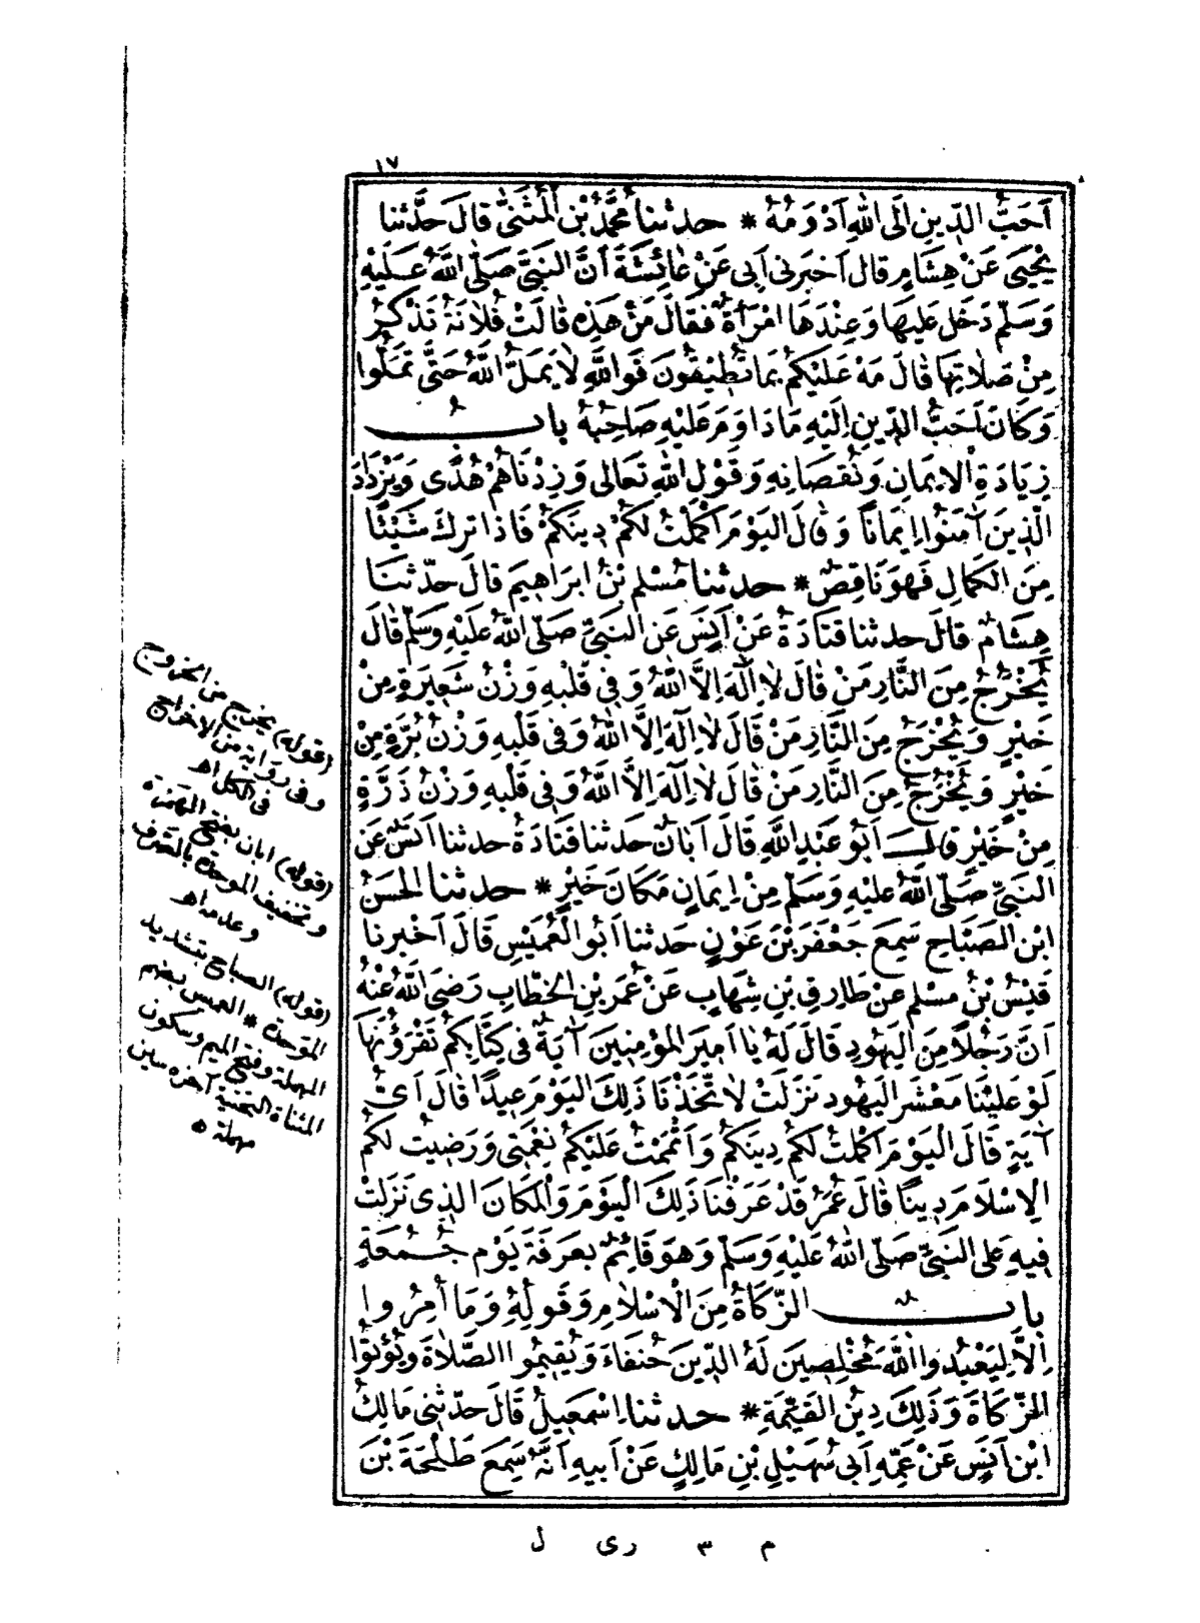 ١٧
اَحَبُّ الدّينِ اِلَى اللهِ اَدْوَمُهُ * حدثنا مُحَمَّدُ بْنُ الْمُثَنَّى قالَ حَدَّثنا
يَحْيَى عَنْ هِشَامٍ قال اَخبرَنى اَبِى عَنْ عائِشَةَ اَنَّ النَبىَّ صَلّى اللهُ عَلَيْهِ
وَسَلّم دَخَل عَليهَا وَعِنْدَهَا امْرَأَةٌ فقَالَ مَنْ هَذِهِ قالَتْ فُلانَةُ تَذْكُرُ
مِنْ صَلاتِهَا قالَ مَهْ عَلَيْكُمْ بمَا تُطِيْقُونَ فَوَاللهِ لا يَمَلُّ اللهُ حَتَّى تَمَلُّوا
وَكَانَ اَحَبُّ الدّينِ اِلَيْهِ مَادَاوَمَ عَليْهِ صَاحِبُهُ بابُ
زِيَادَةِ الاِيمَانِ وَنُقصَانِهِ وَقَوْلِ اللهِ تَعالى وَزِدْنَاهُمْ هُدًى وَيَزْدَادَ
الّذِينَ آمَنُوا اِيمَانًا وَقالَ اليَوْمَ اَكْمَلْتُ لَكُمْ دِينَكُمْ فَاِذا تَركَ شَيْئًا
مِنَ الكَمَالِ فَهوَ نَاقِصٌ * حدثنا مُسْلِم بْنُ ابرَاهِيمَ قالَ حدّثنَا
هِشَامٌ قالَ حدثنا قتَادَةُ عَنْ اَنَسٍ عَن النَبىِّ صَلّى اللهُ عَلَيْهِ وَسَلّم قالَ
يَخْرُجُ مِنَ النَّارِ مَنْ قالَ لا اِلَهَ اِلَّا اللهُ وَفى قَلْبِهِ وَزْنُ شَعِيرَةٍ مِنْ
خَيْرٍ وَيَخْرُجُ مِنَ النَّارِ مَنْ قَالَ لا اِلَهَ اِلَّا اللهُ وَفى قَلْبِهِ وَزْنُ بُرَّةٍ مِنْ
خَيْرٍ وَيَخْرُجُ مِنَ النَّارِ مَنْ قالَ لا اِلَهَ اِلَّا اللهُ وَفى قَلْبِهِ وَزْنُ ذَرَّةٍ
مِنْ خَيْرٍ قال اَبُو عَبْدِ اللهِ قَالَ اَبَانُ حَدثنا قَتَادَةُ حدثنا اَنَسٌ عَن
النَبىِّ صَلّى اللهُ عليْهِ وَسَلّم مِنْ اِيمَانٍ مَكَانَ خَيْرٍ * حدثنا الحسَنُ
ابْن الصَبّاحِ سَمِعَ جَعْفَرَ بْنَ عَوْنٍ حَدثنا اَبُو الْعُمَيْسِ قَالَ اَخْبرنا
قَيْسُ بْنُ مسْلم عَنْ طارِقِ بْنِ شِهَابٍ عَنْ عُمَر بْنِ الخطّابِ رَضِىَ اللهُ عَنْهُ
اَنَّ رَجُلاً مِنَ اليَهُودِ قَالَ لَهُ يا اَمِيرَ المُؤمِنِينَ آيَةٌ فى كِتَابِكُمْ تَقْرَؤُنَهَا
لَوْ عَلَيْنا مَعْشَرَ اليَهُودِ نَزَلَتْ لاتّخَذْنَا ذَلِكَ اليَوْمَ عِيدًا قَالَ اَىُّ
آيَةٍ قَالَ الْيَوْمَ اَكْمَلْتُ لَكُمْ دِينَكُمْ وَاَتْمَمْتُ عَلَيْكُمْ نِعْمَتِى وَرَضِيتُ لَكُمُ
الاِسْلاَمَ دِينًا قَالَ عُمَرُ قَدْ عَرَفْنَا ذَلِكَ الْيَوْمَ وَالْمَكَانَ الذِى نَزَلَتْ
فِيهِ عَلى النَبِىِّ صَلّى اللهُ عَلَيْهِ وَسَلّم وَهوَ قَائِمٌ بعَرَفَةَ يَوْم جُمُعَةٍ
بابُ الزّكَاةُ مِنَ الْاسْلاَمِ وَقَولُهُ وَمَا اُمِرُوا
اِلاَّ لِيَعْبُدوا اللهَ مُخْلِصِينَ لَهُ الدّينَ حُنفَاءَ وَيُقِيمُوا الصَّلاَةَ وَيُؤْتُوا
الزّكَاةَ وَذَلِكَ دِيْنُ القَيِّمَةِ * حدثنا اِسْمَعِيلُ قَالَ حدّثنِى مَالِكُ
ابْن اَنَسٍ عَنْ عَمِّهِ اَبِى سُهَيْلِ بْنِ مَالِكٍ عَنْ اَبيهِ اَنَّهُ سَمِعَ طَلْحَةَ بْنَ
(قوله) يخرج من الخروج
وفى رواية من الاخراج
فى الكل اهـ
(قوله) ابان بفتح الهمزة
وتخفيف الموحدة بالصرف
وعدمه اهـ
(قوله) الصباح بتشديد
الموحدة * العميس بضم
المهملة وفتح الميم وسكون
المثناة التحتية آخره سين
مهملة ه
م ٣ رى ل